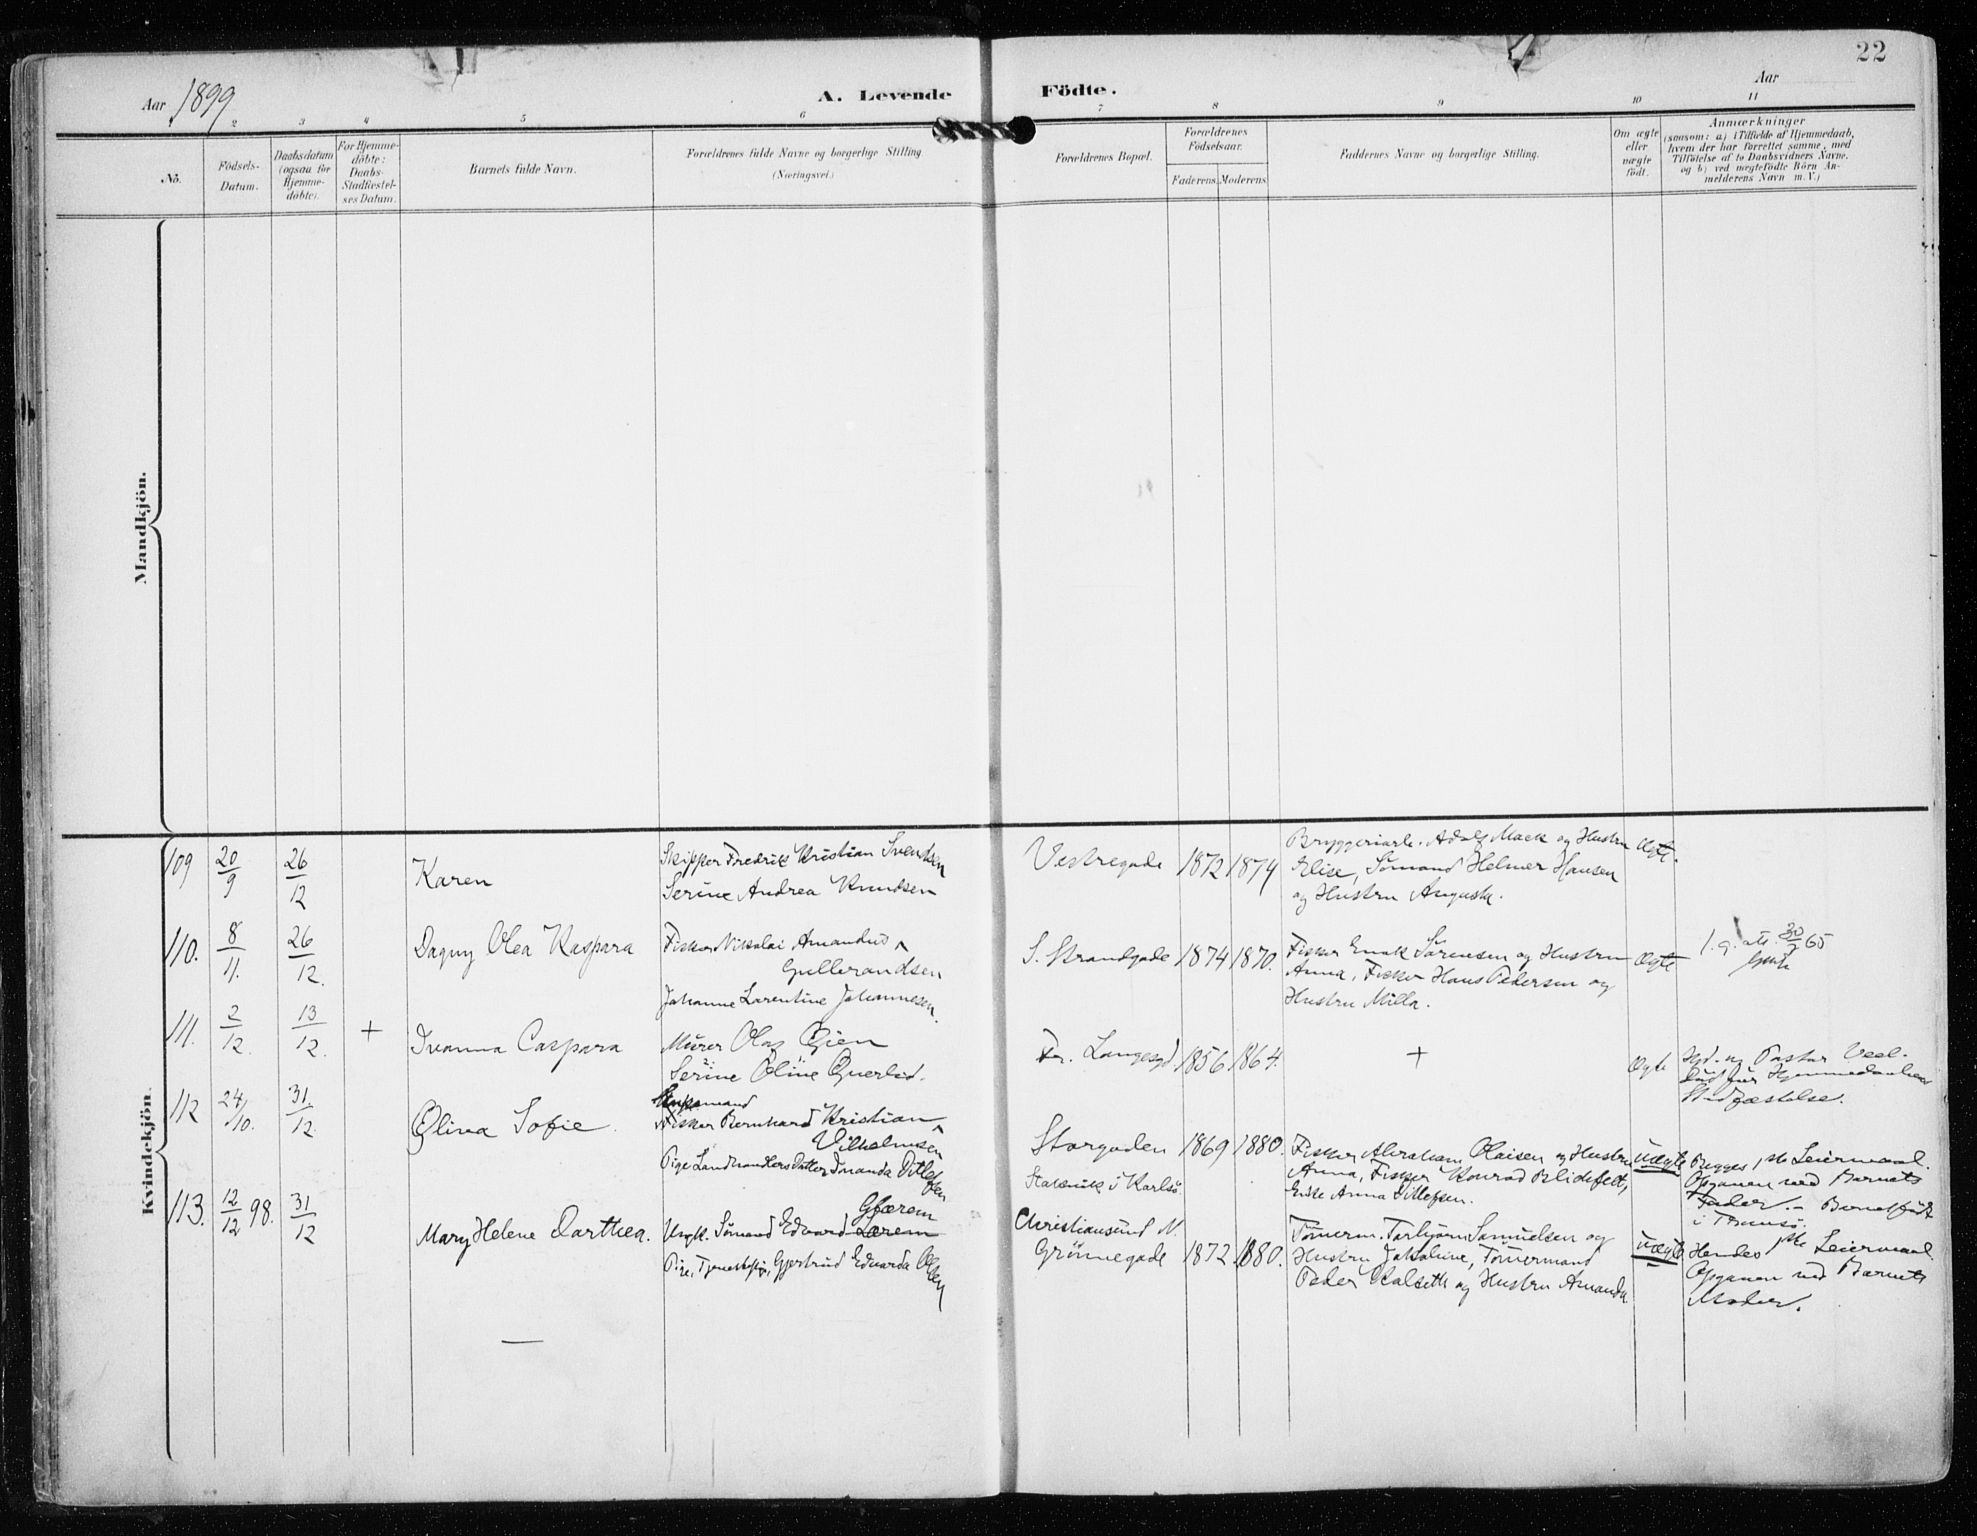 22
Aar 1899
A. Levende Födte.
Aar
1 2 3 4 5 6 7 8 9 10 11
No.
Födsels-Datum.
Daabsdatum (ogsaa for Hjemme-döbte).
For Hjemme-döbte: Daabs-Stadfæstel-ses Datum.
Barnets fulde Navn.
Forældrenes fulde Navne og borgerlige Stilling
(Næringsvei.)
Forældrenes Bopæl.
Forældrenes Födselsaar.
Faderens. Moderens.
Faddernes Navne og borgerlige Stilling.
Om ægte eller uægte födt.
Anmærkninger
(saasom: a) i Tilfælde af Hjemmedaab,
hvem der har forrettet samme, med
Tilföielse af to Daabsvidners Navne,
og b) ved uægtefödte Börn An-
melderens Navn m. V.)
Mandkjön.
Kvindekjön.
109 20/9 26/12 Karen
Skipper Fredrik Kristian Svendsen
Serine Andrea Knudsen
Vestregade 1872 1874
Bryggeriarb. Adolf Mack og Hustru
Elise, Sömand Helmer Hansen
og Hustru Augusta.
Ægte.
110. 8/11. 26/12. Dagny Olea Kaspara
Fisker Nikolai Amandus
Gullerandsen
Johanne Larentine Johannesen.
S. Strandgade 1874 1870.
Fisker Enok Sörensen og Hustru
Anna, Fisker Hans Pedersen og
Hustru Milla.
Ægte
111. 2/12. 13/12. + Ivanna Caspara
Murer Olaf Gjen
Serine Oline
Fr. Langesgd. 1856. 1864.
+
Ægte
og Pastor
for Hjemmedaabens
Stadfæstelse.
112 24/10. 31./12. Olina Sofie.
Fisker Bernhard Kristian
Vilhelmsen
Pige Landhandlers Datter Amanda Ditlefsen
Storgaden 1869 1880.
i Karlsö.
Fisker Abraham Olaisen og Hustru
Anna, Fisker Konrad Blidefelt,
Enke Anna Ditlefsen.
uægte
Begges 1ste Leiermaal.
Opgaven ved Barnets
Fader. – Barnet födt
i Tromsö.
113. 12/12 98. 31/12 Mary Helene Darthea.
Gfærem
Ungk. Sömand Edvard Lærem
Pige, Tjenestepige, Gjertrud Edvarda Olsen
Christiansund N.
Grönnegade 1872. 1880.
Tömerm. Torbjörn Samuelsen og
Hustru Jakobine, Tömermand
Peder Kalseth og Hustru Amanda
uægte
Hendes 1ste Leiermaal.
Opgaven ved Barnets
Moder.
—